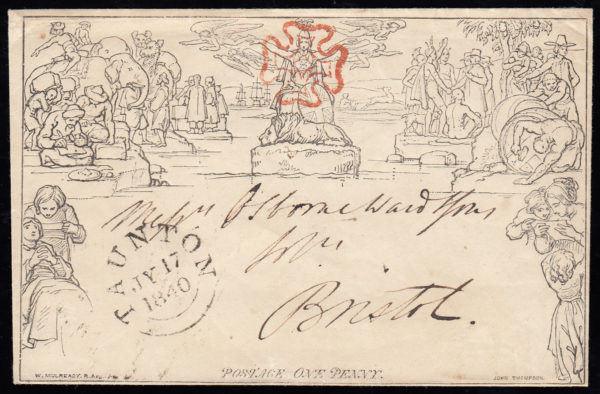 Messrs Osborne Ward & Sons
Bristol.
TAUNTON
JY 17
1840
POSTAGE ONE PENNY.
W. MULREADY. R.A.
JOHN THOMPSON.